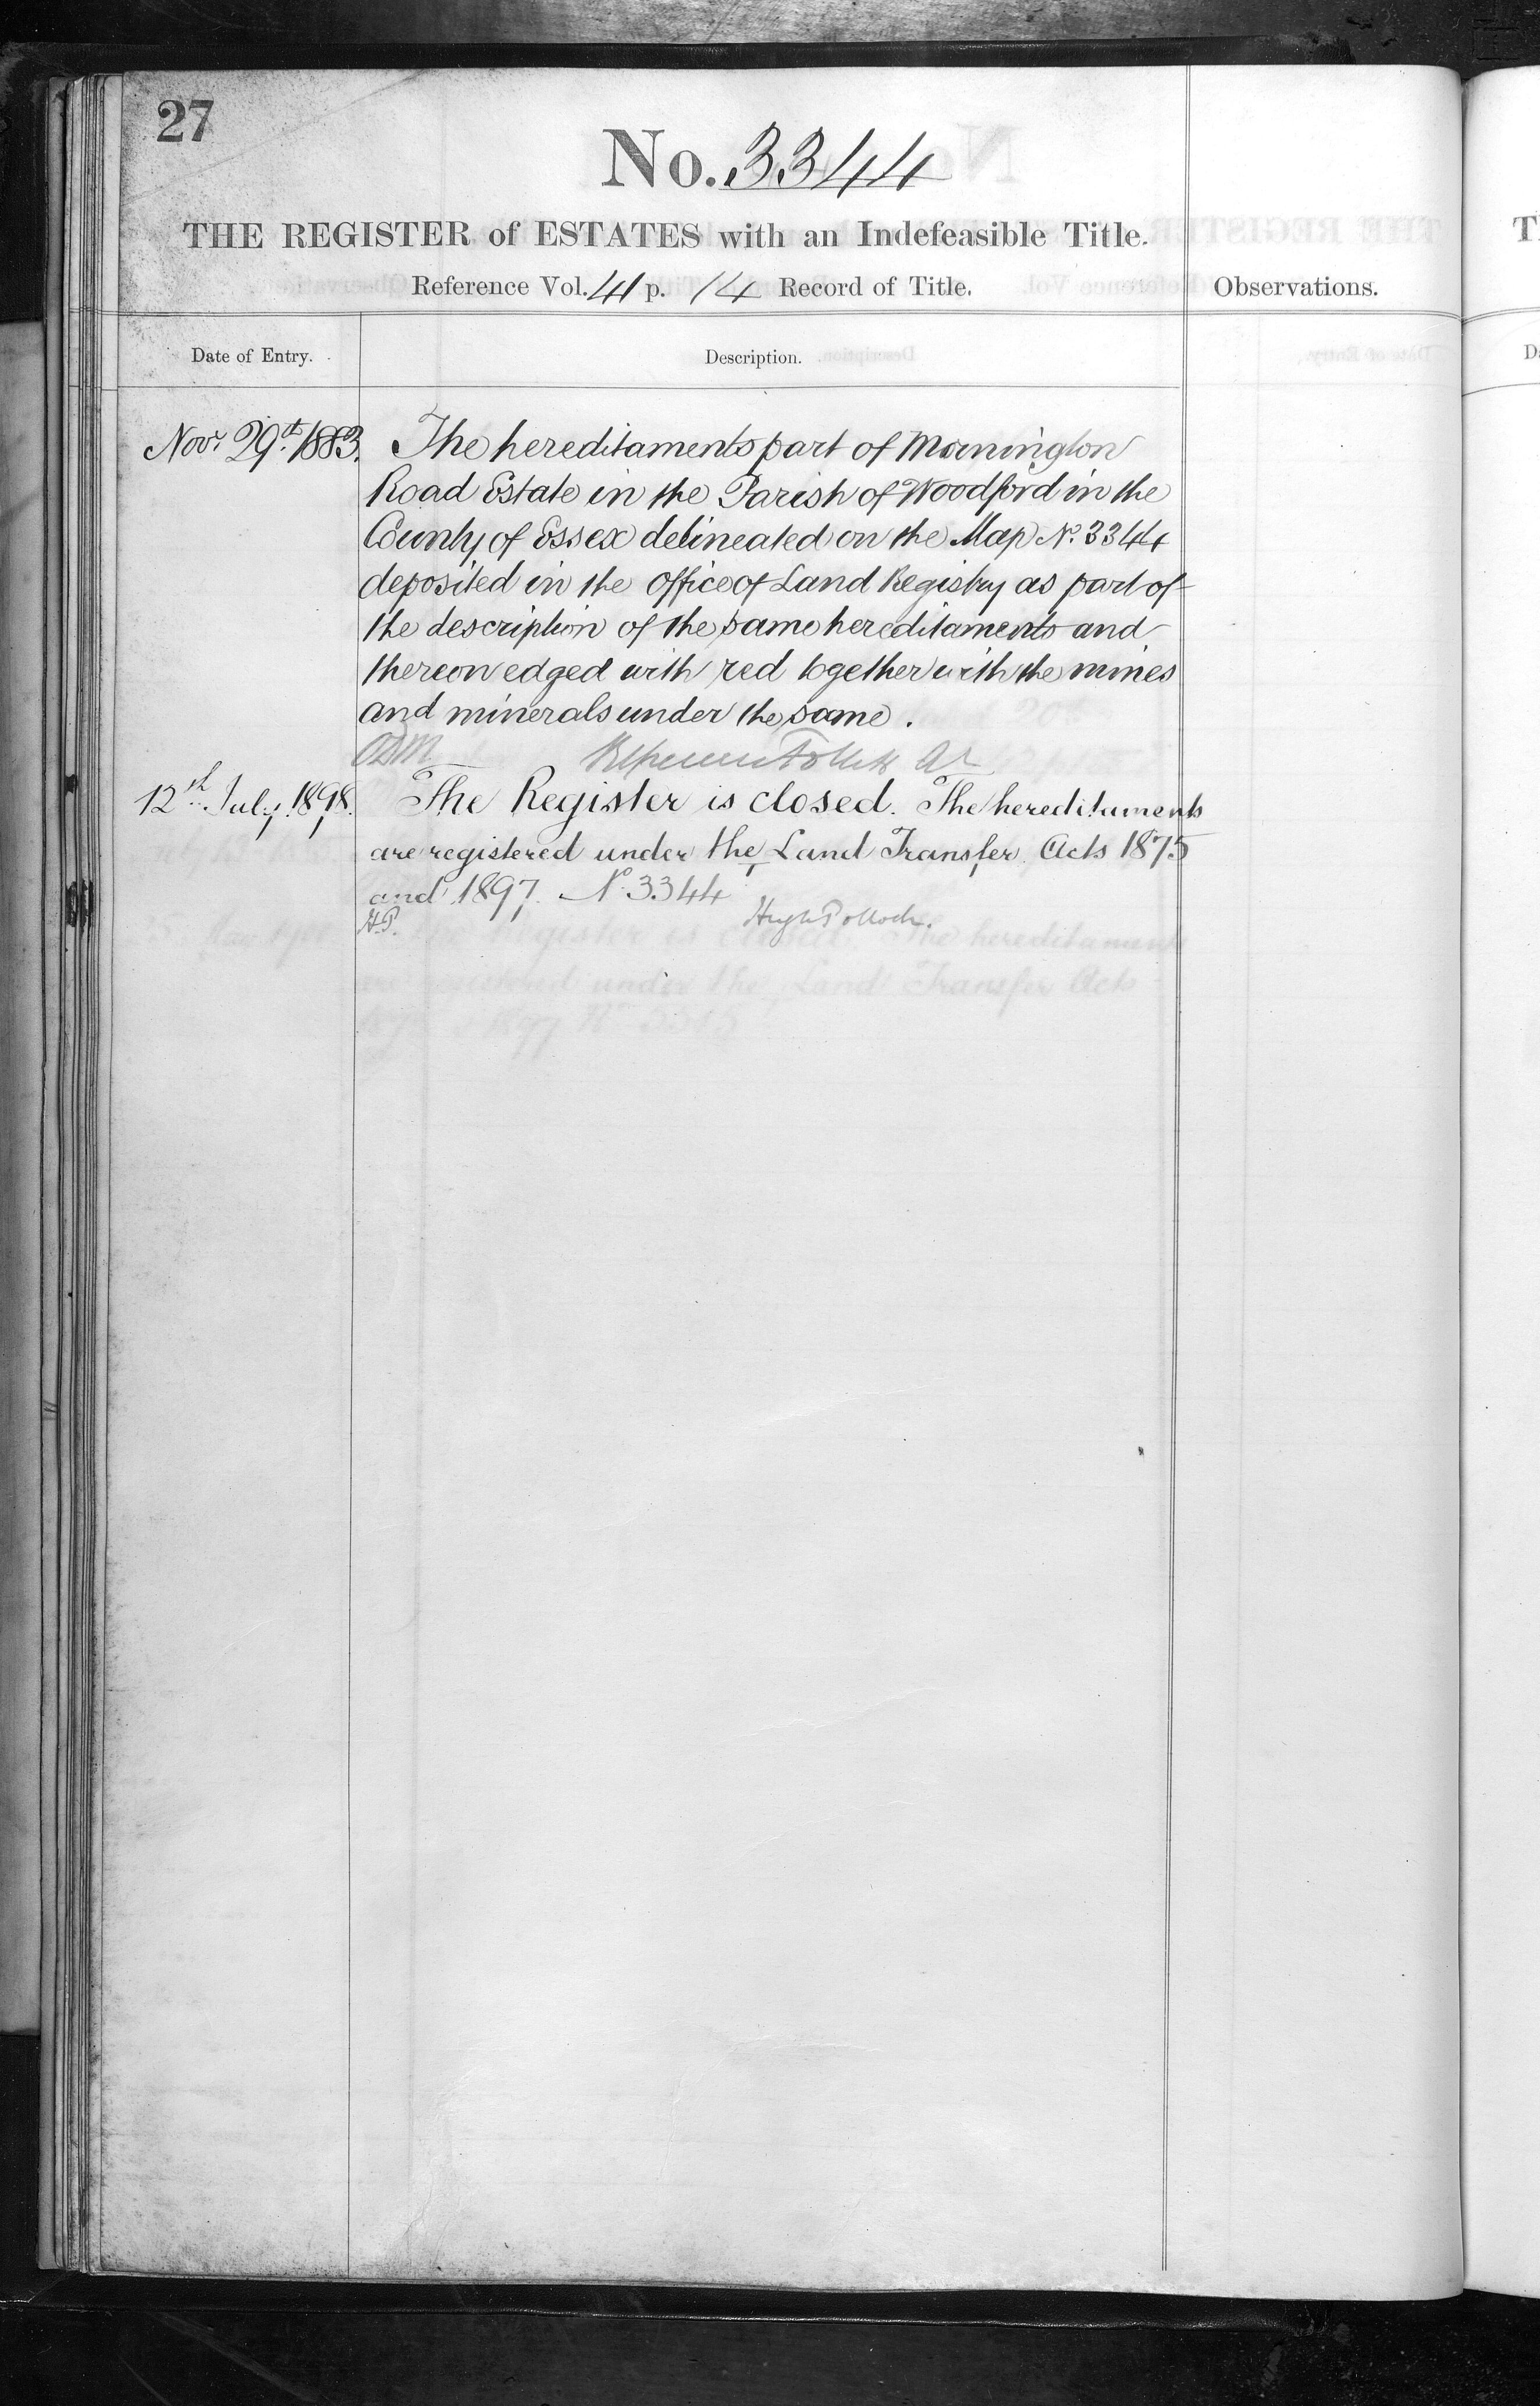 27
No. 3344
THE REGISTER of ESTATES with an Indefeasible Title.
Reference Vol. 41 p. 14 Record of Title.
Observations.
Date of Entry.
Description.
Novr 29th 1883.
The hereditaments part of Mornington
Road Estate in the Parish of Woodford in the
County of Essex delineated on the Map No. 3344
deposited in the office of Land Registry as part of
the description of the same hereditaments and
thereon edged with red together with the mines
and minerals under the same.
12th July 1898.
The Register is closed. The hereditaments
are registered under the Land Transfer Acts 1875
and 1897. No. 3344
H.P.
Hugh Pollock.